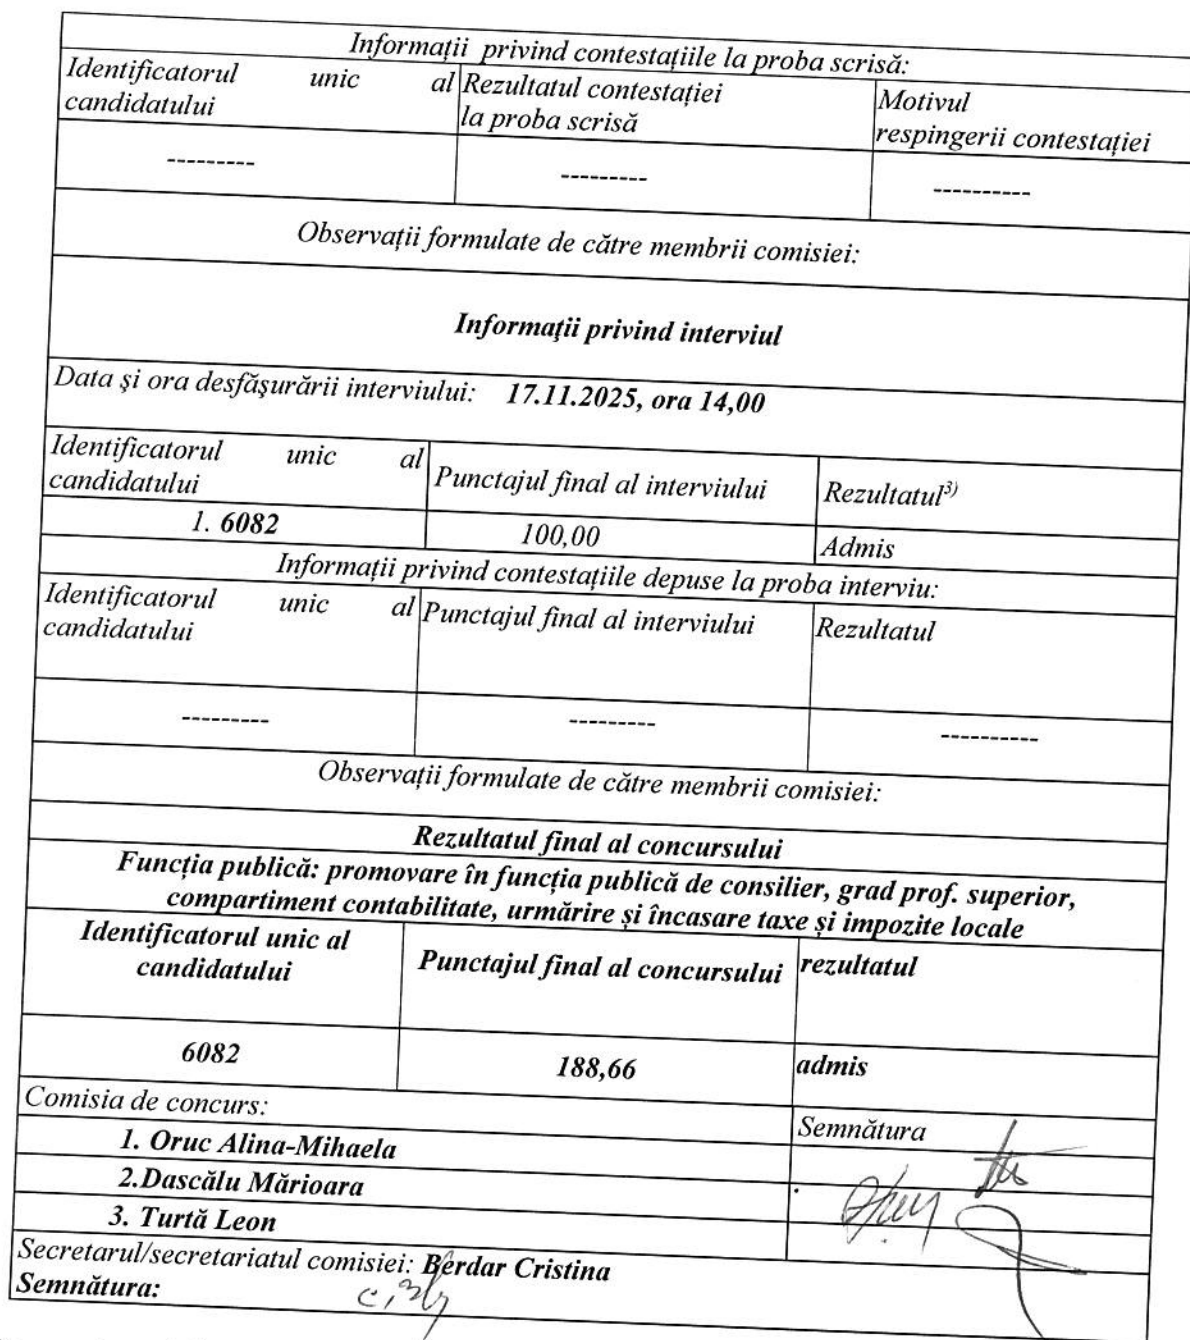 Informații privind contestațiile la proba scrisă:
Identificatorul unic al candidatului
Rezultatul contestației la proba scrisă
Motivul respingerii contestației
---------
---------
----------
Observații formulate de către membrii comisiei:
Informaţii privind interviul
Data şi ora desfăşurării interviului: 17.11.2025, ora 14,00
Identificatorul unic al candidatului
Punctajul final al interviului
Rezultatul3)
1. 6082
100,00
Admis
Informații privind contestațiile depuse la proba interviu:
Identificatorul unic al candidatului
Punctajul final al interviului
Rezultatul
---------
---------
----------
Observații formulate de către membrii comisiei:
Rezultatul final al concursului
Funcția publică: promovare în funcția publică de consilier, grad prof. superior,
compartiment contabilitate, urmărire și încasare taxe și impozite locale
Identificatorul unic al candidatului
Punctajul final al concursului
rezultatul
6082
188,66
admis
Comisia de concurs:
Semnătura
1. Oruc Alina-Mihaela
2.Dascălu Mărioara
3. Turtă Leon
Secretarul/secretariatul comisiei: Berdar Cristina
Semnătura: